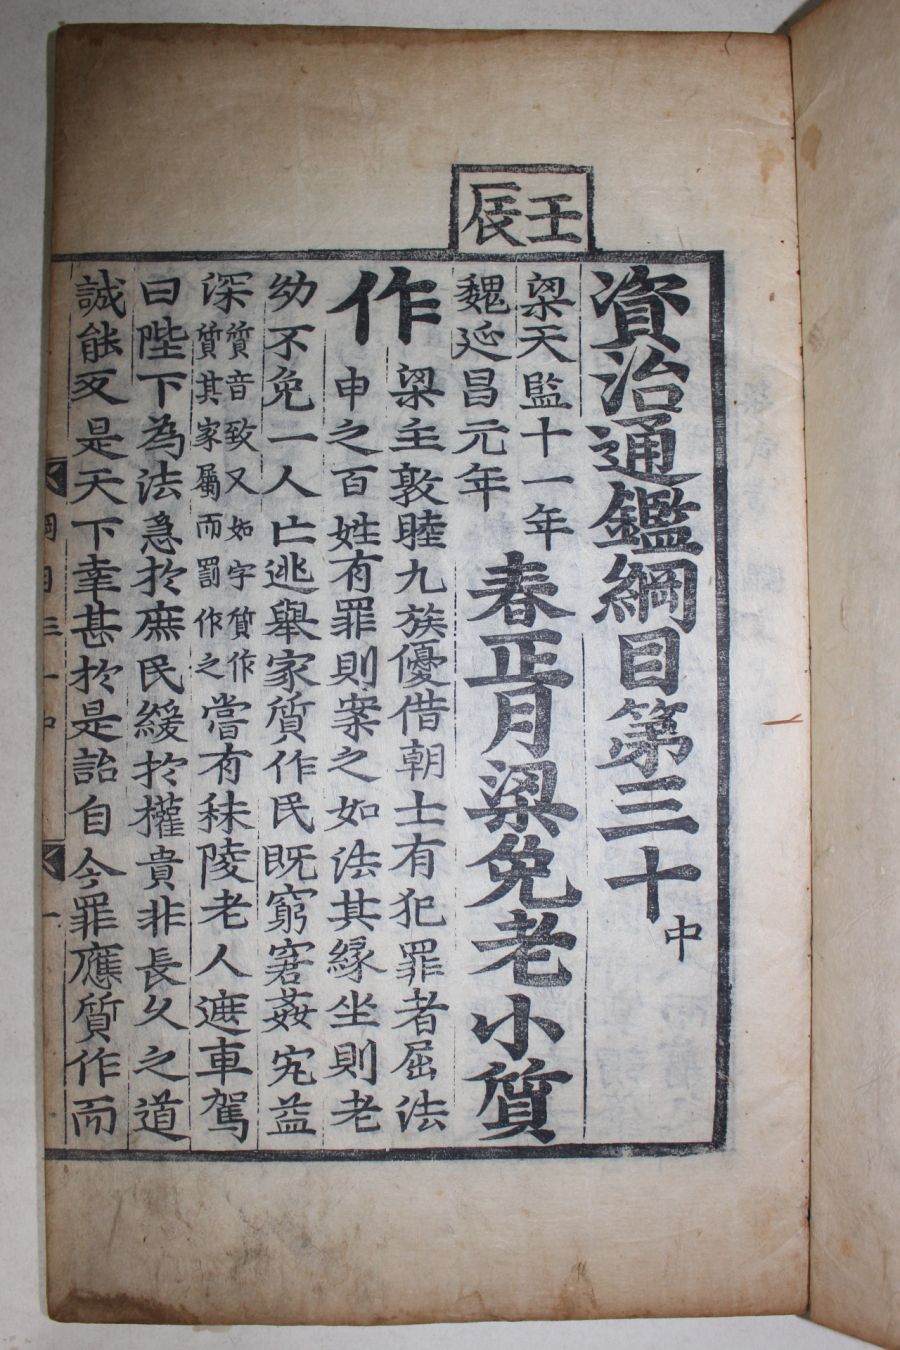 壬辰
資治通鑑綱目第三十中
梁天監十一年
魏延昌元年
春正月梁免老小質
作
梁主敦睦九族優借朝士有犯罪者屈法
申之百姓有罪則案之如法其緣坐則老
幼不免一人亡逃舉家質作民既窮窘姦宄益
深
質音致又如字質作
質其家屬而罰作之
嘗有秣陵老人遮車駕
曰陛下為法急於庶民緩於權貴非長久之道
誠能反是天下幸甚於是詔自今罪應質作而
綱目三十中
一